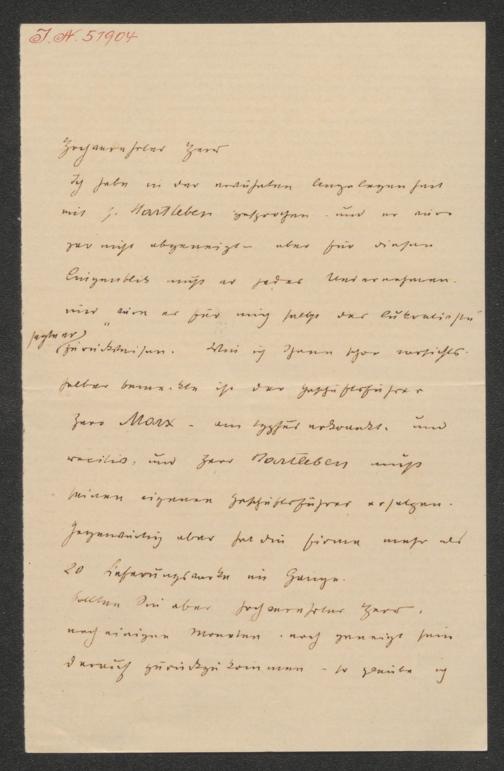 I. N. 51904
Hochverehrter Herr
Ich habe in der erwähnten Angelegenheit
mit H. Hartleben gesprochen – und er wäre
gar nicht abgeneigt – aber für diesen
Augenblick muß er jedes Unternehmen.
und "wäre es für mich selbst das lukrativste"
sagte er
zurückweisen. Wie ich Ihnen schon vorsichts-
halber bemerkte ist der Geschäftsführer
Herr Marx – am Typhus erkrankt. und
, und Herr Hartleben muß
seinen eigenen Geschäftsführer ersetzen.
Gegenwärtig aber hat die Firma mehr als
20 Lieferungswerke im Gange.
Sollten Sie aber hochverehrter Herr,
nach einigen Monaten noch geneigt sein
darauf zurückzukommen – so glaube ich